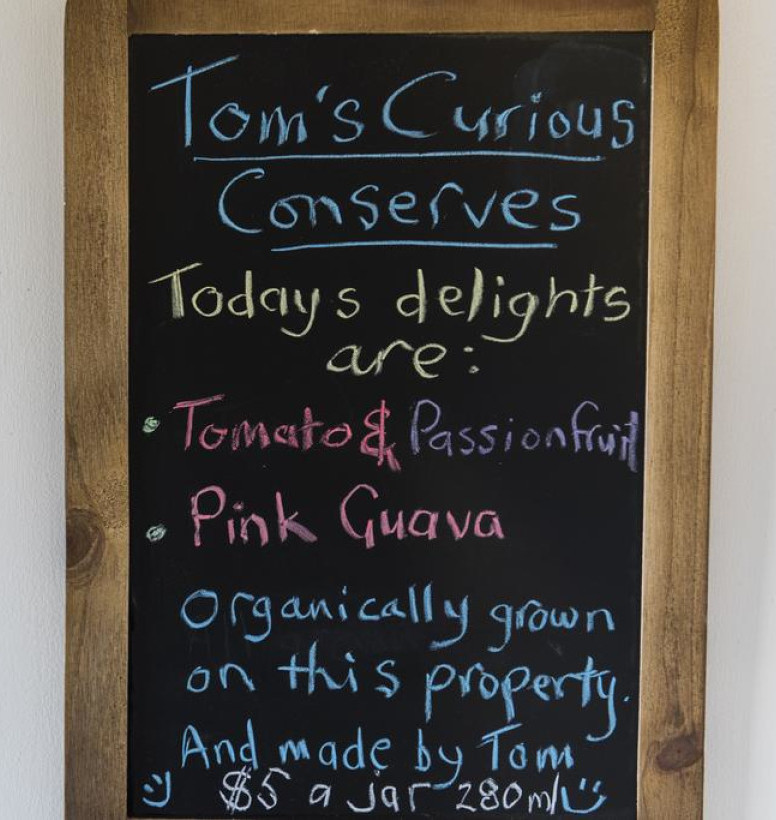 Tom's Curious
Conserves
Todays delights
are:
• Tomato & Passionfruit
• Pink Guava
Organically grown
on this property.
And made by Tom
$5 a jar 280ml